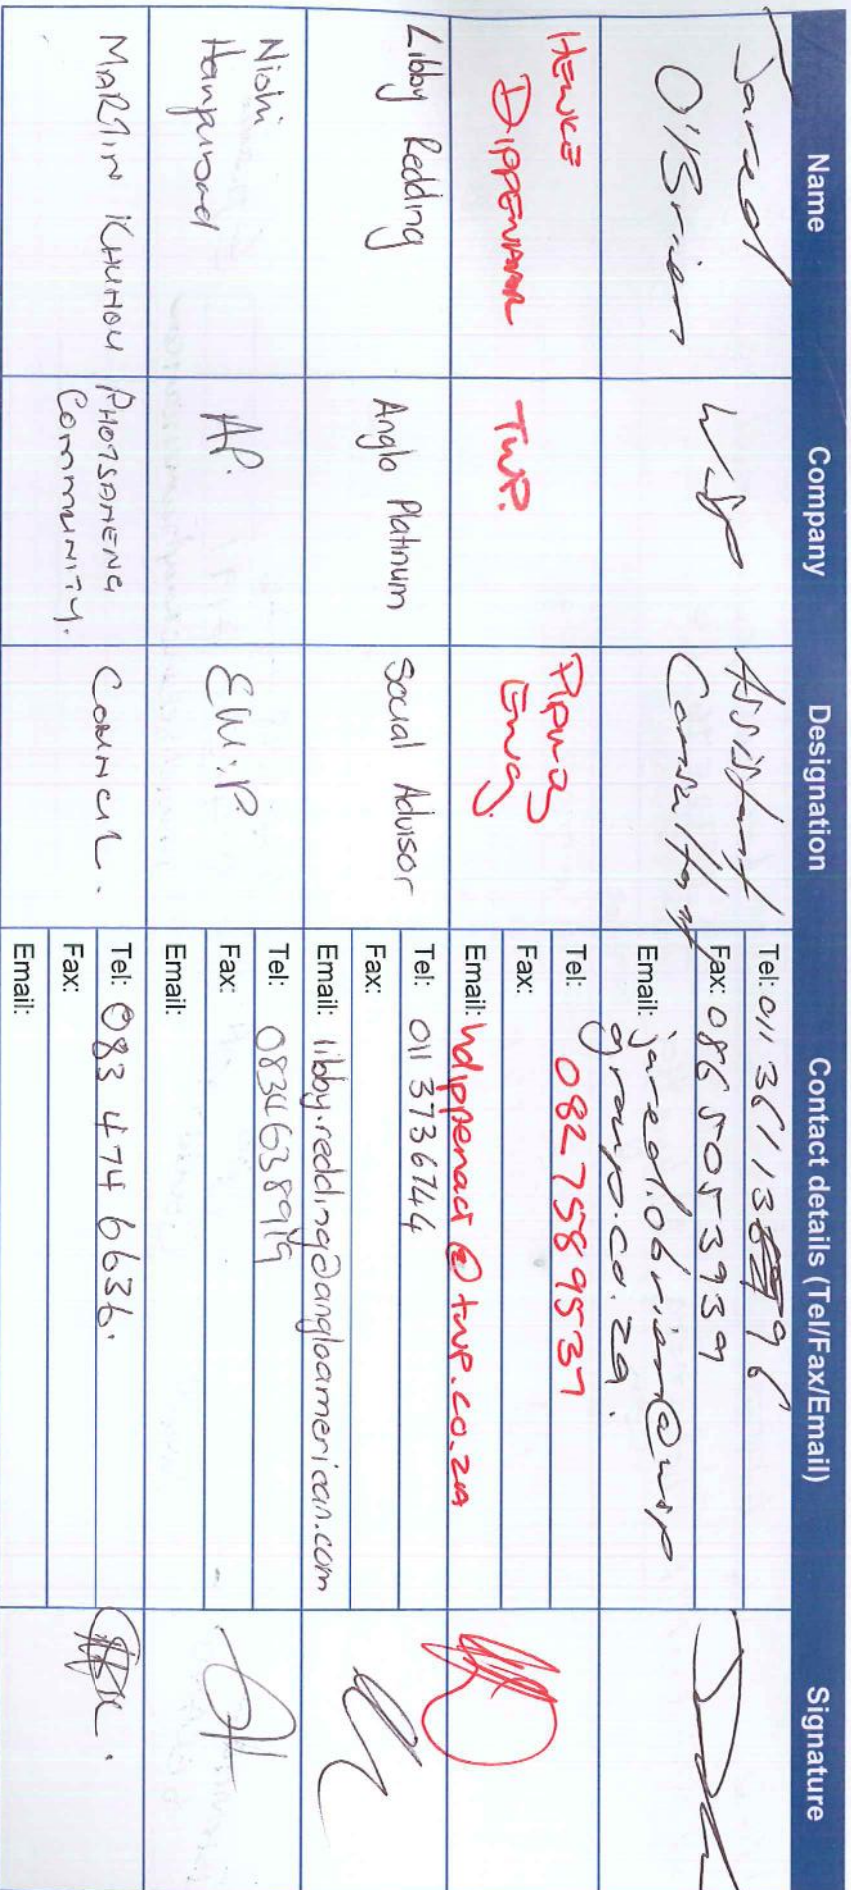 Name Company Designation Contact details (Tel/Fax/Email) Signature
Jared
O'Brien
WSP
Assistant
Consultant
Tel: 011 361 13 96
Fax: 086 505 3939
Email: jared.obrien@wsp
group.co.za.
HENKE
DIPPENAAR
TWP.
Piping
Eng.
Tel: 082 758 9537
Fax:
Email: hdippenaar@twp.co.za
Libby Redding
Anglo Platinum
Social Advisor
Tel: 011 3736744
Fax:
Email: libby.redding@angloamerican.com
Nishi
Haripursad
AP.
Tel: 0834638919
Fax:
Email:
MARTIN KHUNOU
PHOTSANENG
COMMUNITY.
COUNCIL.
Tel: 083 474 6636.
Fax:
Email: